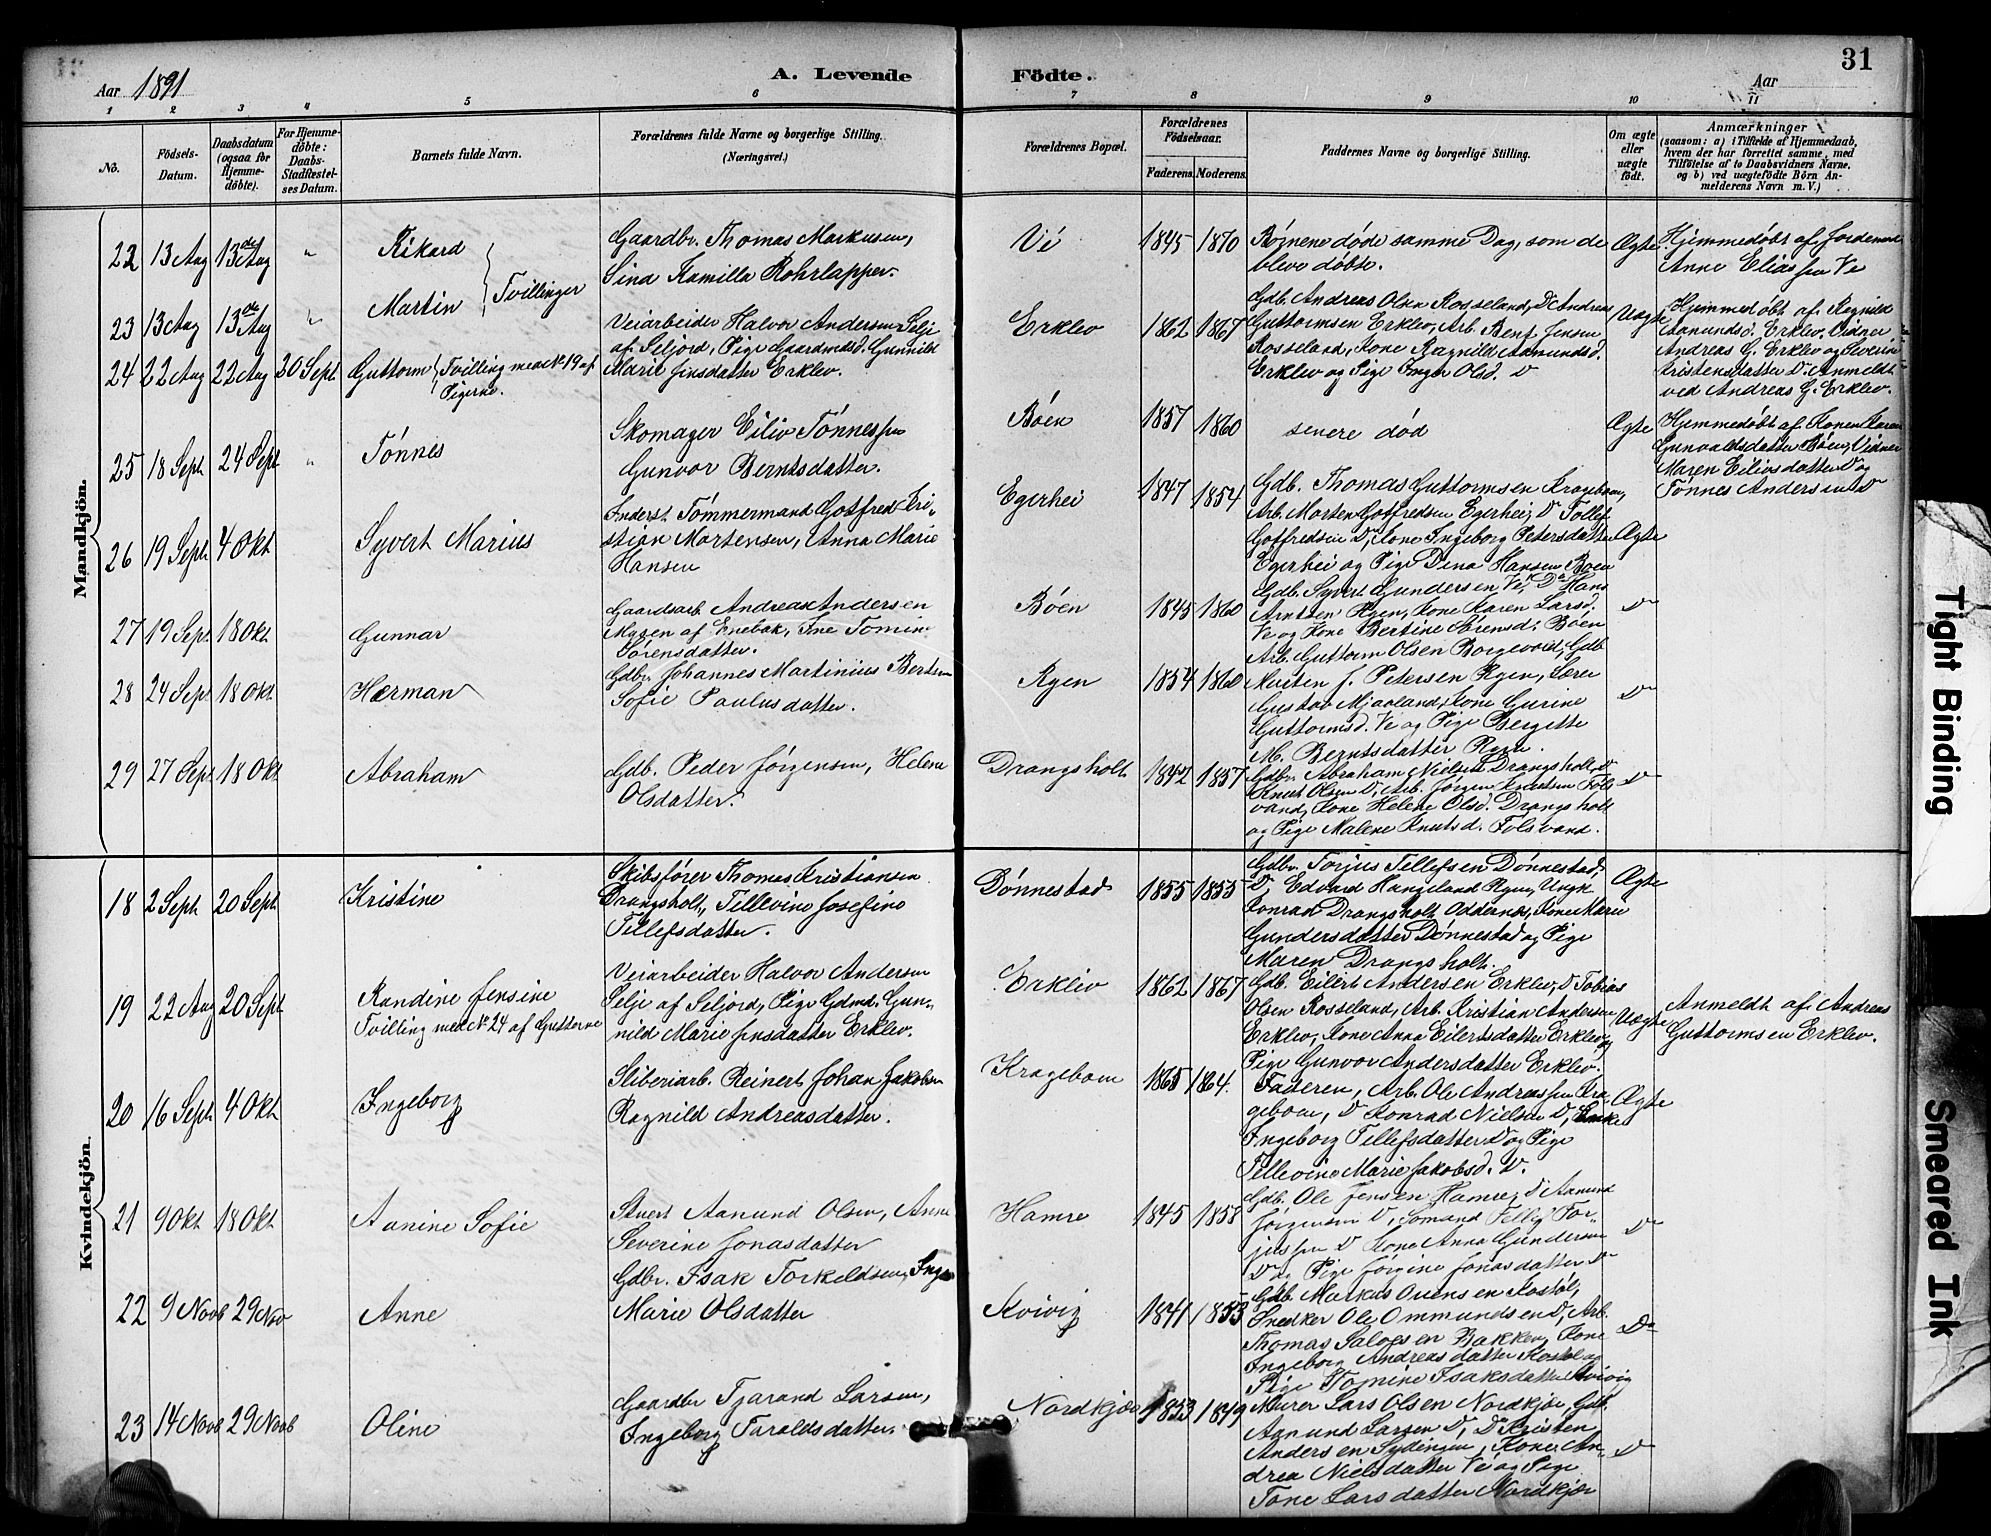 31
Aar 1891
A. Levende
Födte.
Aar
1 2 3 4 5 6 7 8 9 10 11
No.
Födsels-
Datum.
Daabsdatum
(ogsaa for
Hjemme-
döbte).
For Hjemme-
döbte:
Daabs-
Stadfæstel-
ses Datum.
Barnets fulde Navn.
Forældrenes fulde Navne og borgerlige Stilling.
(Næringsvei.)
Forældrenes Bopæl.
Forældrenes
Födselsaar.
Faderens. Moderens.
Faddernes Navne og borgerlige Stilling.
Om ægte
eller
uægte
födt.
Anmærkninger
(saasom: a) i Tilfælde af Hjemmedaab,
hvem der har forrettet samme, med
Tilföielse af to Daabsvidners Navne,
og b) ved uægtefödte Börn An-
melderens Navn m. V.)
Mandkjön.
22 13 Aug 13de Aug " Rikard
Martin } Tvillinger
Gaardbr. Thomas Markusen,
Sina Kamilla Rohrlapper.
Vé 1845 1870
Børnene døde samme Dag, som de
bleve døbte.
Ægte
Hjemmedøbt af Jordemod
Anne Elias fra Ve
23 13 Aug 13de Aug "
24 22 Aug 22 Aug 20 Sept. Guttorm { Tvilling med No 19 af
Pigerne.
Veiarbeider Halvor Andersen Selje
af Seljord, Pige Gaardmdsd. Gunnild
Marie Jensdatter Erklev.
Erklev 1862 1867
Gdb. Andreas Olsen Rosseland, Do Andreas
Guttormsen Erklev, Arb. Bent Jensen
Rosseland, Kone Ragnild Aamundsd.
Erklev og Pige Inger Olsd. Do
Uægte
Hjemmedøbt af Ragnild
Aamundsd. Erklev. Vidner
Andreas G. Erklev og Severine
Kristensdatter Do. Anmeldt
ved Andreas G. Erklev.
25 18 Sept. 24 Sept. " Tønnes
Skomager Eiliv Tønnessen
Gunvor Berntsdatter.
Bøen 1857 1860
senere død
Ægte
Hjemmedøbt af Konen Karen
Gunvaldsdatter Bøen, Vidner
Maren Eilivsdatter Do og
Tønnes Andersen Do
26 19 Sept. 4 Okt Syvert Marius
Inderst Tømmermand Gotfred Kri-
stian Mortensen, Anna Marie
Hansen
Egerhei 1847 1854
Gdb. Thomas Guttormsen Krageboen,
Arb. Morten Gotfredsen Egerhei, Do Tollef
Gotfredsen Do, Kone Ingeborg Petersdatter
Egerhei og Pige Dina Hansen Boen
Ægte
27 19 Sept. 18 Okt Gunnar
Gaardsarb. Andreas Andersen
Mysen af Enebak, Ine Tomine
Sørensdatter.
Bøen 1845 1860
Gdb. Syvert Gundersen Ve, Do Hans
Arntsen Ryen, Kone Karen Larsd.
Ve og Kone Bertine Sørensd. Boen
Do
28 24 Sept 18 Okt. Hærman
Gdbr. Johannes Martinius Bertsen
Sofie Paulusdatter.
Ryen 1854 1860
Arb. Guttorm Olsen Borgevold, Gdb.
Morten J. Petersen Ryen, Lærer
Gustav Mjaaland, Kone Gurine
Guttormsd. Ve og Pige Bergitte
M. Berntsdatter Ryen.
Do
29 27 Sept. 18 Okt Abraham
Gdb. Peder Jørgensen, Helene
Olsdatter.
Drangsholt 1842 1857
Gdbr. Abraham Nielsen Drangsholt, Do
Knut Olsen Do, Arb. Jørgen Knutsen Føls
vand, Kone Helene Olsd. Drangsholt
og Pige Malene Knutsd. Følsvand.
Do
Kvindekjön.
18 2 Sept. 20 Sept. Kristine
Skibsfører Thomas Kristiansen
Drangsholt, Tellevine Josefine
Tellefsdatter.
Dønnestad 1855 1855
Gdbr. Torjus Tellefsen Dønnestad,
Do, Edvard Haugeland Ryen, Ungk.
Konrad Drangsholt Oddernes, Kone Marie
Gundersdatter Dønnestad og Pige
Maren Drangsholt.
Ægte
19 22 Aug 20 Sept. Randine Jensine
Tvilling med No 24 af Guttorme
Veiarbeider Halvor Andersen
Selje af Seljord, Pige Gdmd. Gun-
nild Marie Jensdatter Erklev.
Erklev 1862 1867
Gdb. Eilert Andersen Erklev, Do Tobias
Olsen Rosseland, Arb. Kristian Andersen
Erklev, Kone Anna Eilertsdatter Erklev og
Pige Gunvor Andersdatter Erklev.
Uægte
Anmeldt af Andreas
Guttormsen Erklev.
20 16 Sept. 4 Okt Ingeborg
Sliberiarb. Reinert Johan Jakobsen
Ragnild Andreasdatter.
Krageboen 1865 1864.
Faderen, Arb. Ole Andreassen Kra-
geboen, Do Konrad Nielsen Do, Enke
Ingeborg Tellefsdatter Do og Pige
Tellevine Marie Jakobsd. Do.
Ægte
21 9 Okt. 18 Okt. Aanine Sofie
Stuert Aanund Olsen, Anne
Severine Jonasdatter
Hamre 1845 1858
Gdb. Ole Jensen Hamre, Do Aanund
Jørgensen Do, Sømand Tellef Tor-
jussen Do Kone Anna Gundersen
Do og Pige Jørgine Jonasdatter Do
Do
22 9 Novb 29 Nov Anne
Gdbr. Isak Torkeldsen, Inger
Marie Olsdatter
Kvivig 1841 1853
Gdb. Markus Ovensen Kostøl,
Snedker Ole Ommundsen Do, Arb.
Thomas Salvesen Bakken, Kone
Ingeborg Andreasdatter Kostøl og
Pige Tomine Isaksdatter Kvivig
Do
23 14 Novb 29 Novb Oline
Gaardbr Tjerand Larsen,
Ingeborg Taraldsdatter.
Nordkjær 1853 1849
Murer Lars Olsen Nordkjær, Gdb.
Aanund Larsen Do, Do Kristen
Andersen Sydingen, Kone An-
drea Nielsdatter Ve og Pige
Tone Larsdatter Nordkjær
Do
Tight Binding
Smeared Ink